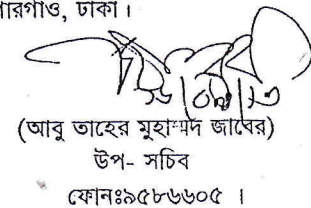 রগাঁও, ঢাকা।
(আবু তাহের মুহাম্মদ জাবের)
উপ- সচিব
ফোনঃ৯৫৮৬৬০৫ ।